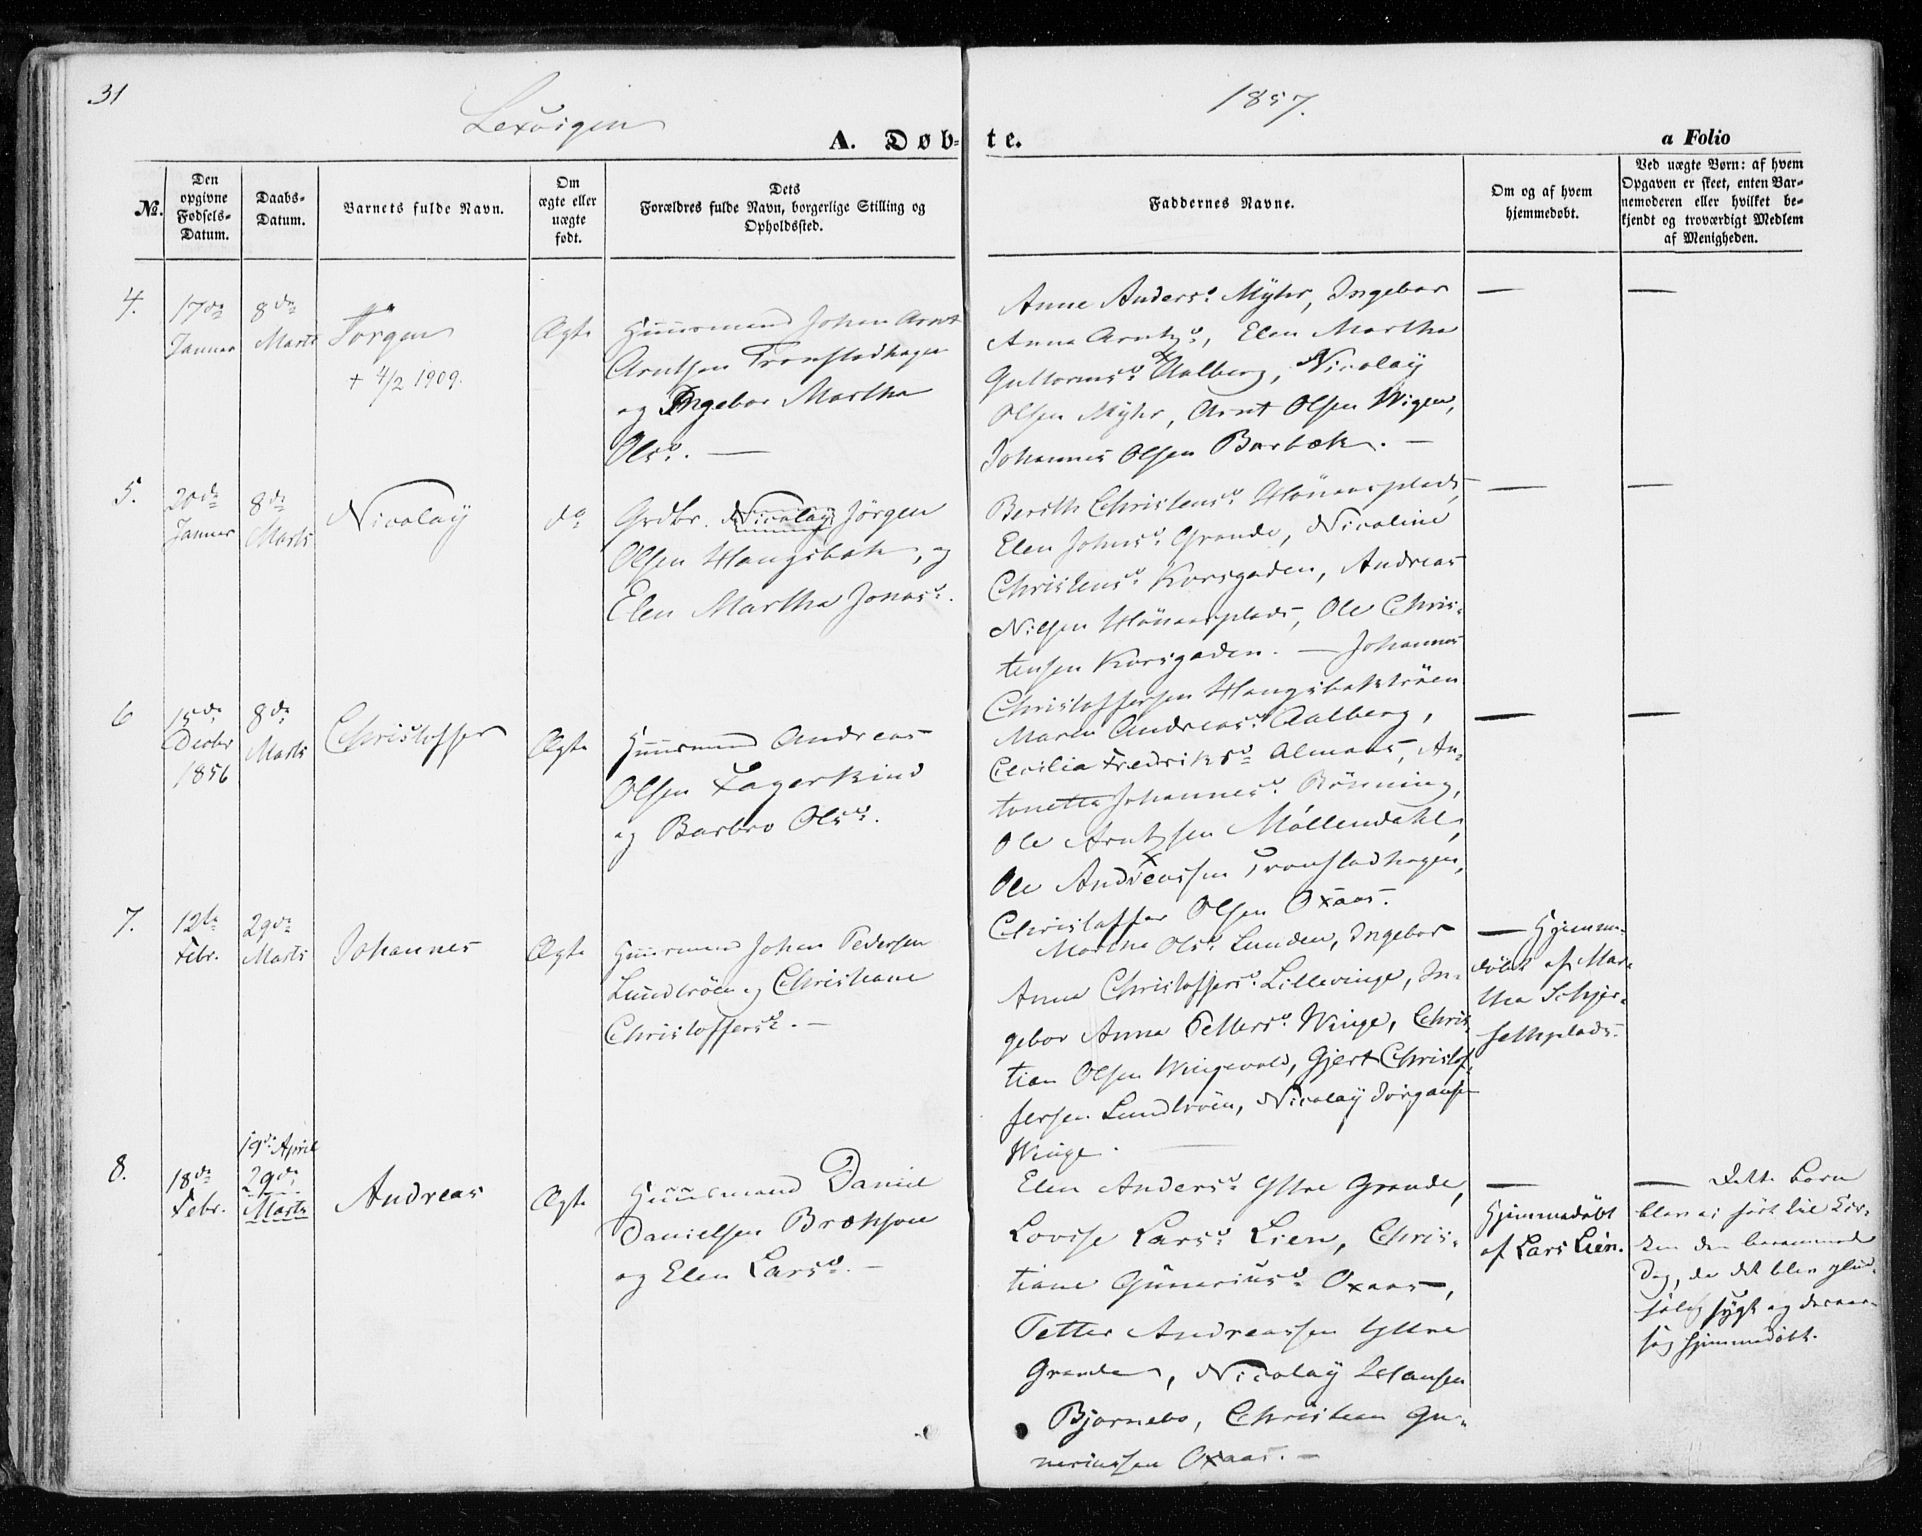 31
Lexvigen
1857.
A. Døb-
te.
a Folio
No.
Den opgivne Fødsels-Datum.
Daabs-Datum.
Barnets fulde Navn.
Om ægte eller uægte født.
Dets
Forældres fulde Navn, borgerlige Stilling og
Opholdssted.
Faddernes Navne.
Om og af hvem
hjemmedøbt.
Ved uægte Børn: af hvem
Opgaven er skeet, enten Bar-
nemoderen eller hvilket be-
kjendt og troværdigt Medlem
af Menigheden.
4.
17de
Januar
8de
Marts
Jørgen
+ 4/2 1909.
Ægte
Huusmand Johan Arnt
Arntsen Tronstadhagen
og Ingebor Martha
Olsd. —
Anne Andersd. Myhr, Ingebor
Anna Arntzd., Elen Martha
Guttormsd. Aalberg, Nicolay
Olsen Myhr, Arnt Olsen Wigen,
Johannes Olsen Barbæk. —
—
—
5.
20de
Januar
8de
Marts
Nicolaÿ
do
Grdbr. Nicolaÿ Jørgen
Olsen Haugsbak, og
Elen Martha Jonasd.
Berith Christensd. Hönaasplads,
Elen Johnsd. Grande, Nicoline
Christensd. Korsgaden, Andreas
Nilsen Hönaasplads, Ole Chris-
tensen Korsgaden. — Johannes
Christoffersen Haugsbaktröen
—
—
6
15de
Decbr
1856
8de
Marts
Christoffer
Ægte
Huusmand Andreas
Olsen Fagerkind
og Barbro Olsd.
Maren Andreasd. Aalberg,
Cecilia Fredriksd. Almaas, An-
tonetta Johannesd. Rönning,
Ole Arntzsen Møllendahl,
Ole Andreassen Tronstadhagen,
Christoffer Olsen Oxaas.
—
—
7.
12te
Febr.
29de
Marts
Johannes
Ægte
Huusmand Johan Pedersen
Lundtröen og Christiane
Christoffersd. —
Martha Olsd. Lunden, Ingebor
Anna Christoffersd. Lillevinge, In-
gebor Anna Pettersd. Winge, Chris-
tian Olsen Wingevold, Gjert Christof-
fersen Lundtröen, Nicolaÿ Jörgensen
Winge.
— Hjemme-
döbt af Mar-
tha Schjer-
sethplads.
8.
18de
Febr.
19de April
29de
Marts
Andreas
Ægte
Huusmand Daniel
Danielsen Brækhoue
og Elen Larsd. —
Elen Andersd. Yttre Grande,
Lovise Larsd. Lien, Chris-
tiane Gunariusd. Oxaas,
Petter Andreassen Yttre
Grande, Nicolaÿ Hansen
Bjørnebo, Christian Gu-
neriussen Oxaas. —
—
Hjemmedöbt
af Lars Lien.
— Dette Barn
blev ei fört til Kir-
ken den berammede
Dag, da det blev plud-
selig sygt og desaar-
sag hjemmedöbt.